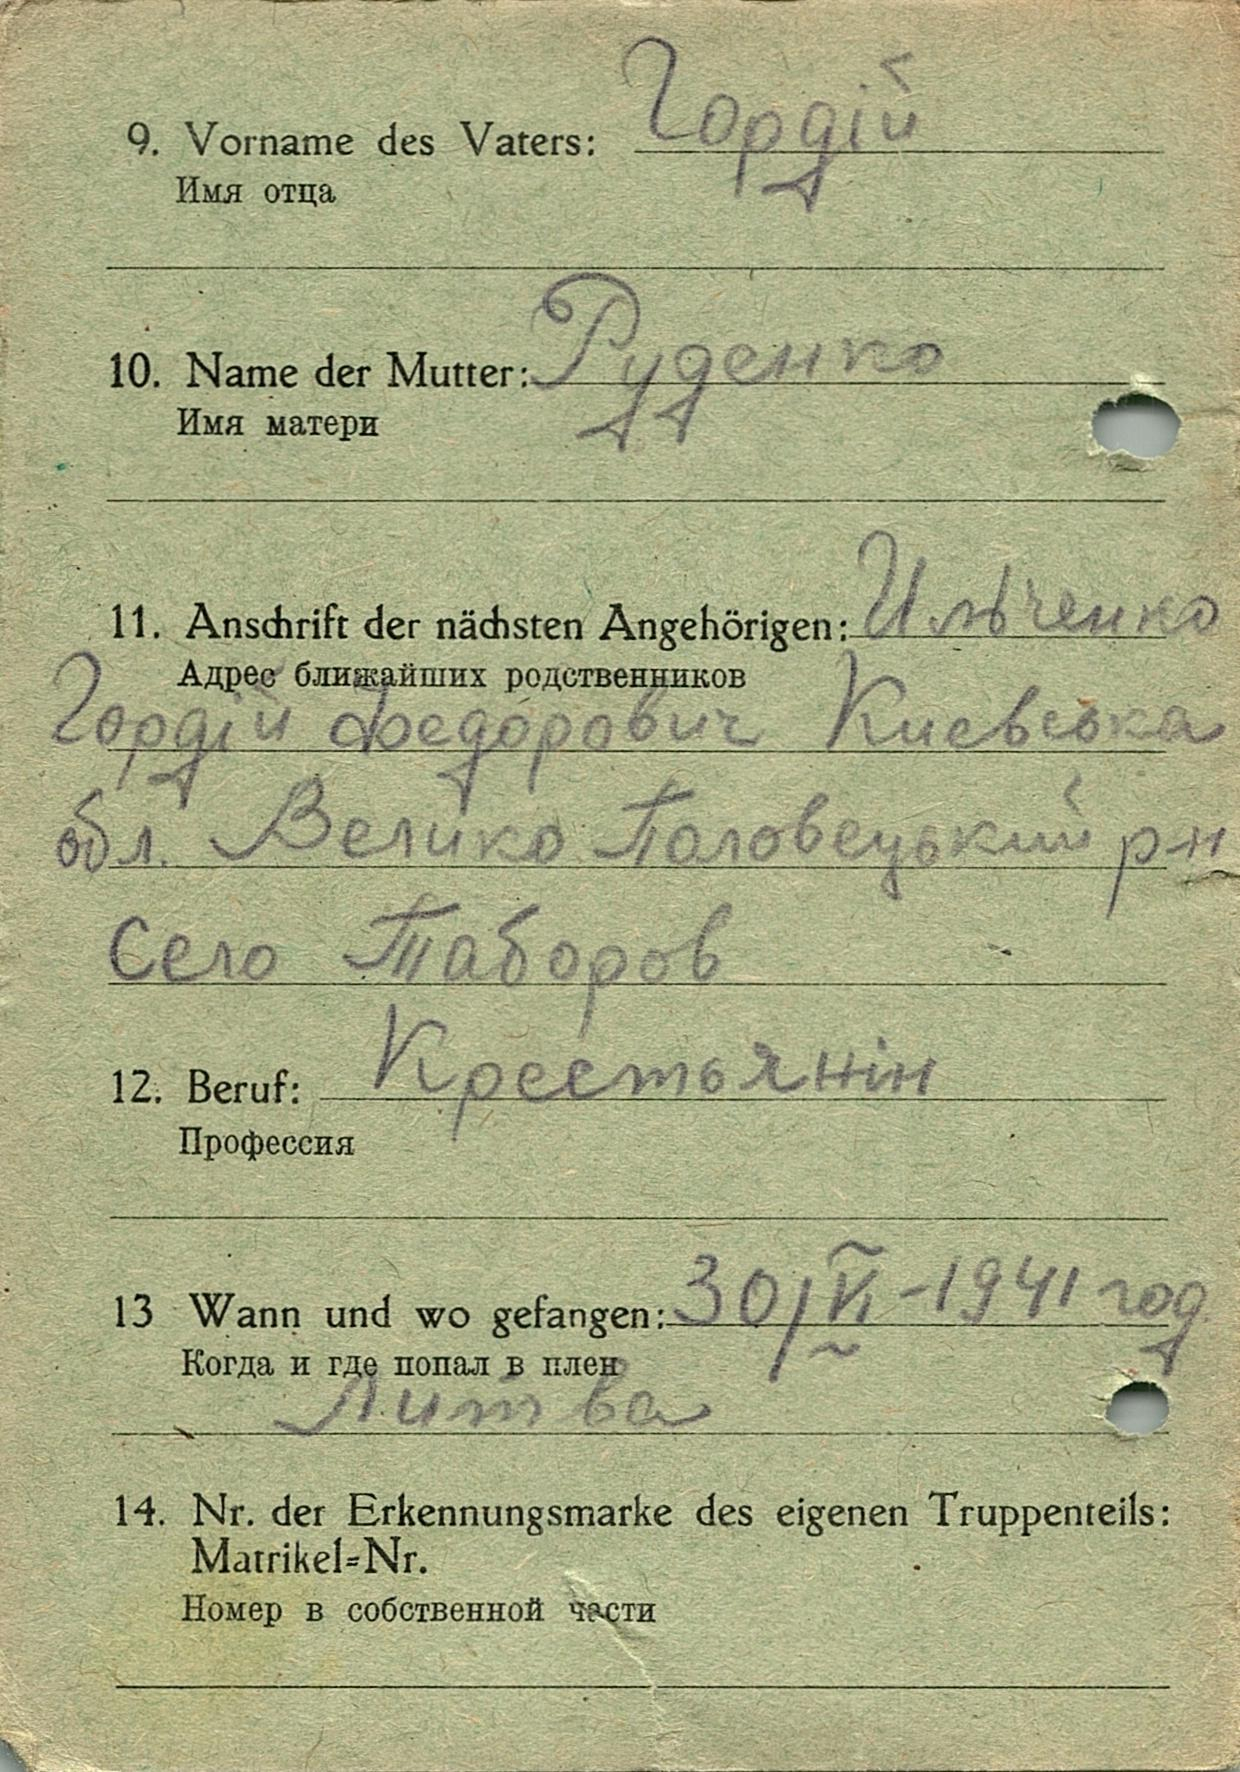 9. Vorname des Vaters: Гордій
Имя отца
10. Name der Mutter: Руденко
Имя матери
11. Anschrift der nächsten Angehörigen: Ильченко
Адрес ближайших родственников
Гордій Федорович Киевська
обл. Велико Половецький р-н
Село Таборов
12. Beruf: Крестьянін
Профессия
13 Wann und wo gefangen: 30/VI-1941 год.
Когда и где попал в плен
Литва
14. Nr. der Erkennungsmarke des eigenen Truppenteils:
Matrikel=Nr.
Номер в собственной части